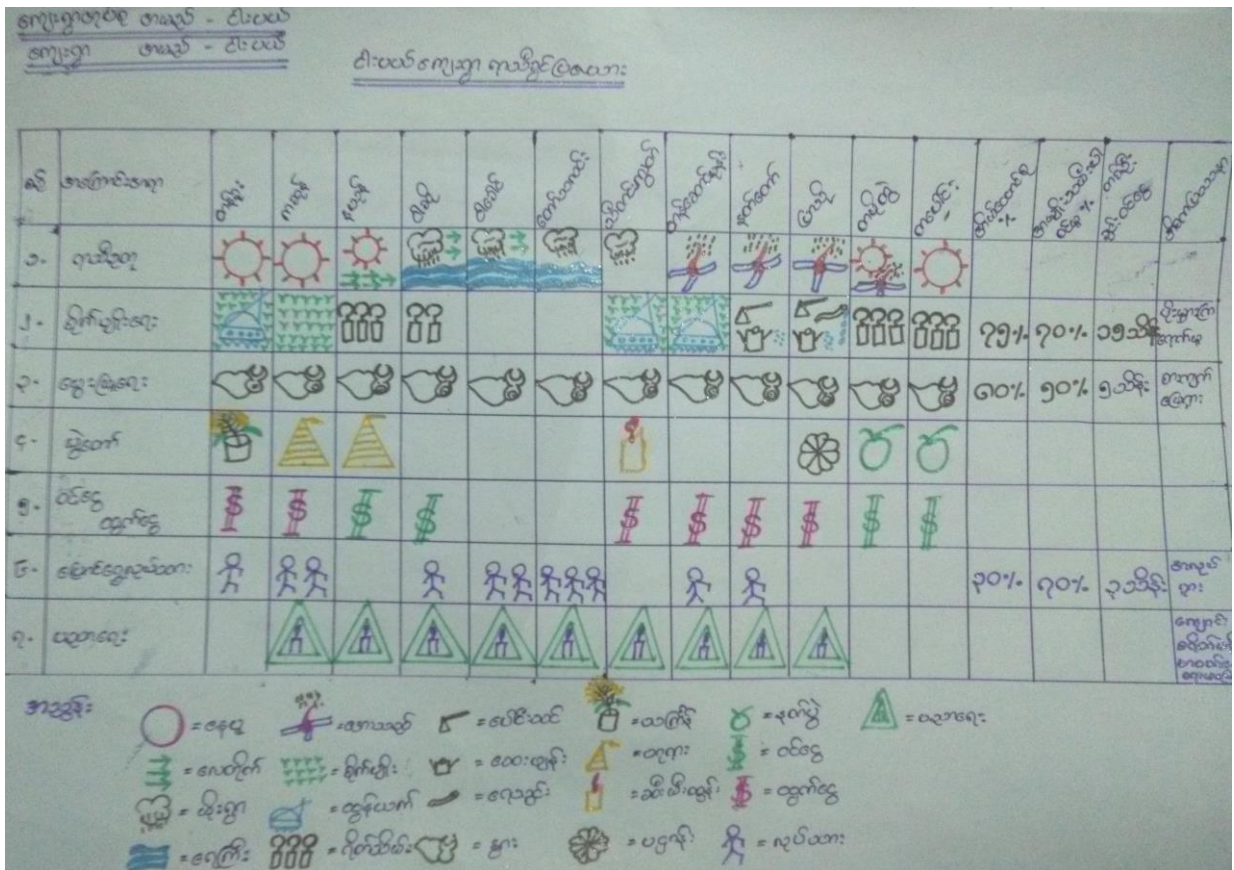 ကျေးရွာအုပ်စု အမည် - ငါးပယ်
ကျေးရွာ အမည် - ငါးပယ်
ငါးပယ်ကျေးရွာ ရာသီခွင်ပြဇယား
စဉ် အကြောင်းအရာ တန်ခူး ကဆုန် နယုန် ဝါဆို ဝါခေါင် တော်သလင်း သီတင်းကျွတ် တန်ဆောင်မုန်း နတ်တော် ပြာသို တပို့တွဲ တပေါင်း
၁- ရာသီဥတု
၂- စိုက်ပျိုးရေး ၇၅% ၇၀% ၁၅သိန်း
၃- မွေးမြူရေး ၈၀% ၅၀% ၅သိန်း
၄- ပွဲတော်
၅- ဝင်ငွေ
ထွက်ငွေ
၆- ရွှေ့ပြောင်းလုပ်သား ၃၀% ၇၀% ၃သိန်း အလုပ်
ရှား
၇- ပညာရေး
အညွှန်း
= နေပူ
= လေတိုက်
= မိုးရွာ
= ရေကြီး
= ဆောင်းရာသီ
= စိုက်ပျိုး
= ထွန်ယက်
= ရိတ်သိမ်း
= ပေါင်းသင်
= ဆေးဖျန်း
= ရေသွင်း
= နွား
= သင်္ကြန်
= ဘုရား
= ဆီမီးထွန်း
= ပဋ္ဌာန်း
= နတ်ပွဲ
= ဝင်ငွေ
= ထွက်ငွေ
= လုပ်သား
= ပညာရေး